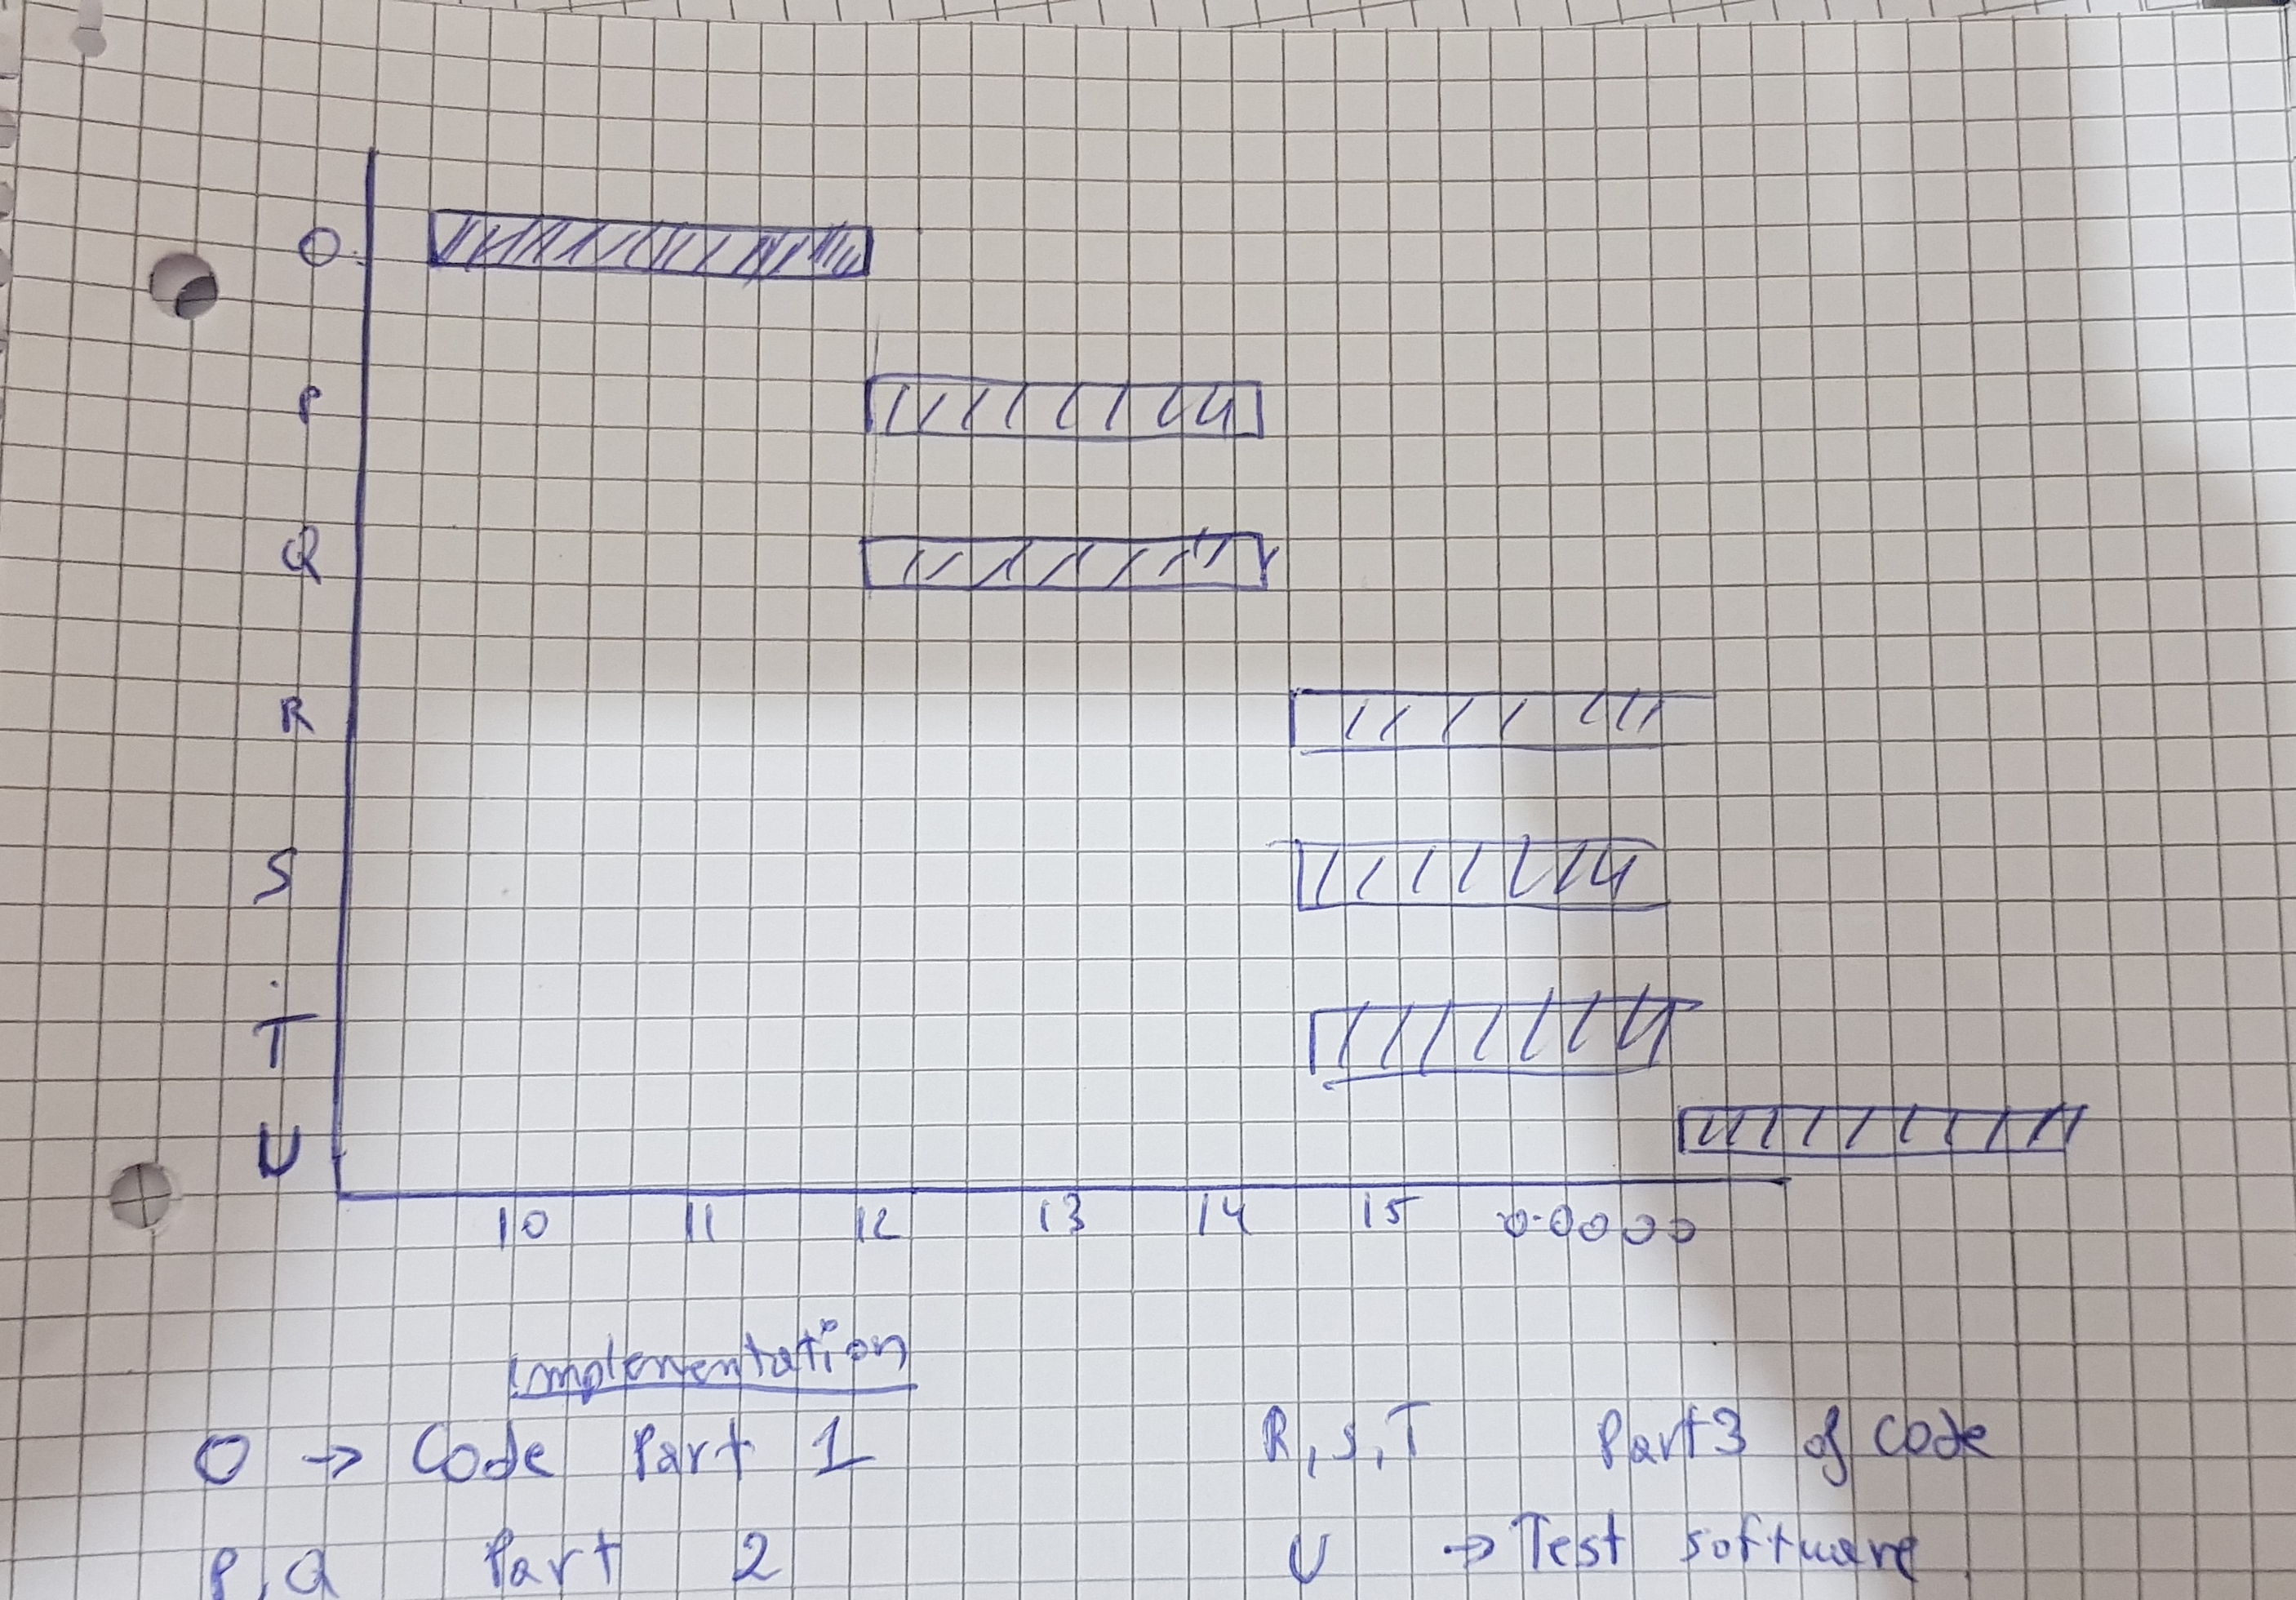 O
P
Q
R
S
T
U
10 11 12 13 14 15
Implementation
O → Code Part 1
R, S, T Part 3 of code
P, Q Part 2
U → Test software